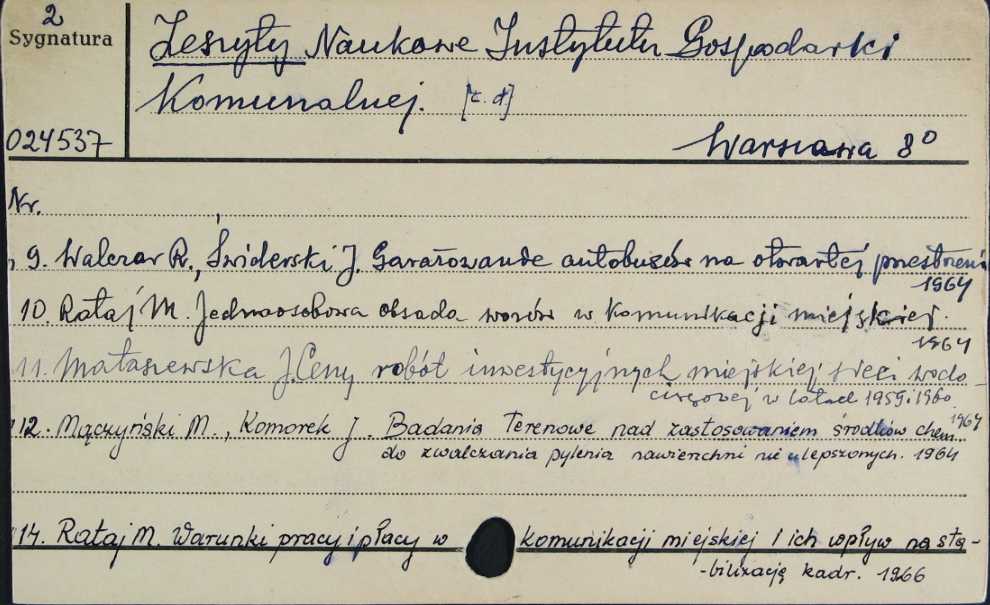 2
Sygnatura
Zeszyty Naukowe Instytutu Gospodarki
Komunalnej. [c. d]
024537
Warszawa 8°
Nr.
9. Walczak R., Świderski J. Garażowanie autobusów na otwartej przestrzeni
1964
10. Rataj M. Jednoosobowa obsada wozów w komunikacji miejskiej.
1964
11. Mataszewska J. Ceny robót inwestycyjnych miejskiej sieci wodo-
ciągowej w latach 1959 i 1960.
1964
12. Mączyński M., Komorek J. Badania terenowe nad zastosowaniem środków chem.
do zwalczania pylenia nawierzchni nie ulepszonych. 1964
14. Rataj M. Warunki pracy i płacy w komunikacji miejskiej i ich wpływ na sta-
-bilizację kadr. 1966